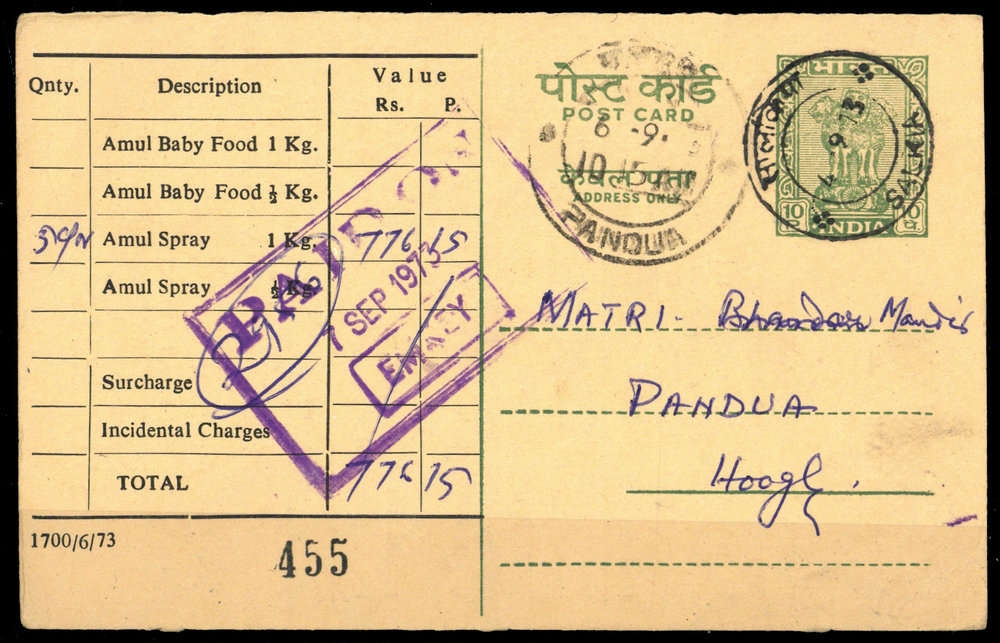 Qnty. Description Value
Rs. P.
Amul Baby Food 1 Kg.
Amul Baby Food ½ Kg.
Amul Spray 1 Kg. 776 15
Amul Spray ½ Kg.
Surcharge
Incidental Charges
TOTAL 776 15
1700/6/73
455
PAID
7 SEP 1973
पोस्ट कार्ड
POST CARD
केवल पता
ADDRESS ONLY
6 -9.
10 15
PANDUA
भारत
10 10
INDIA
सालकिया
4 9 73
SALKIA
MATRI. Bhandar Mandir
PANDUA
Hoogly.